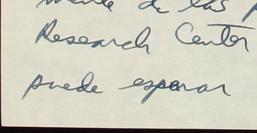 mente de las
Research Center
puede esperar